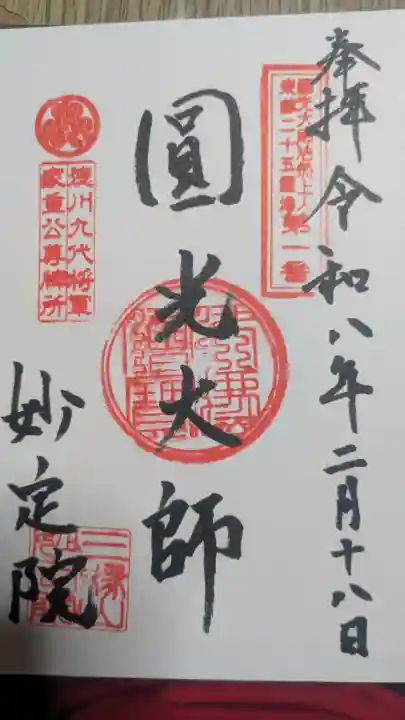 奉拝 令和八年二月十八日
東都二十五霊場第一番
圓光大師
徳川九代将軍
家重公尊牌所
妙定院